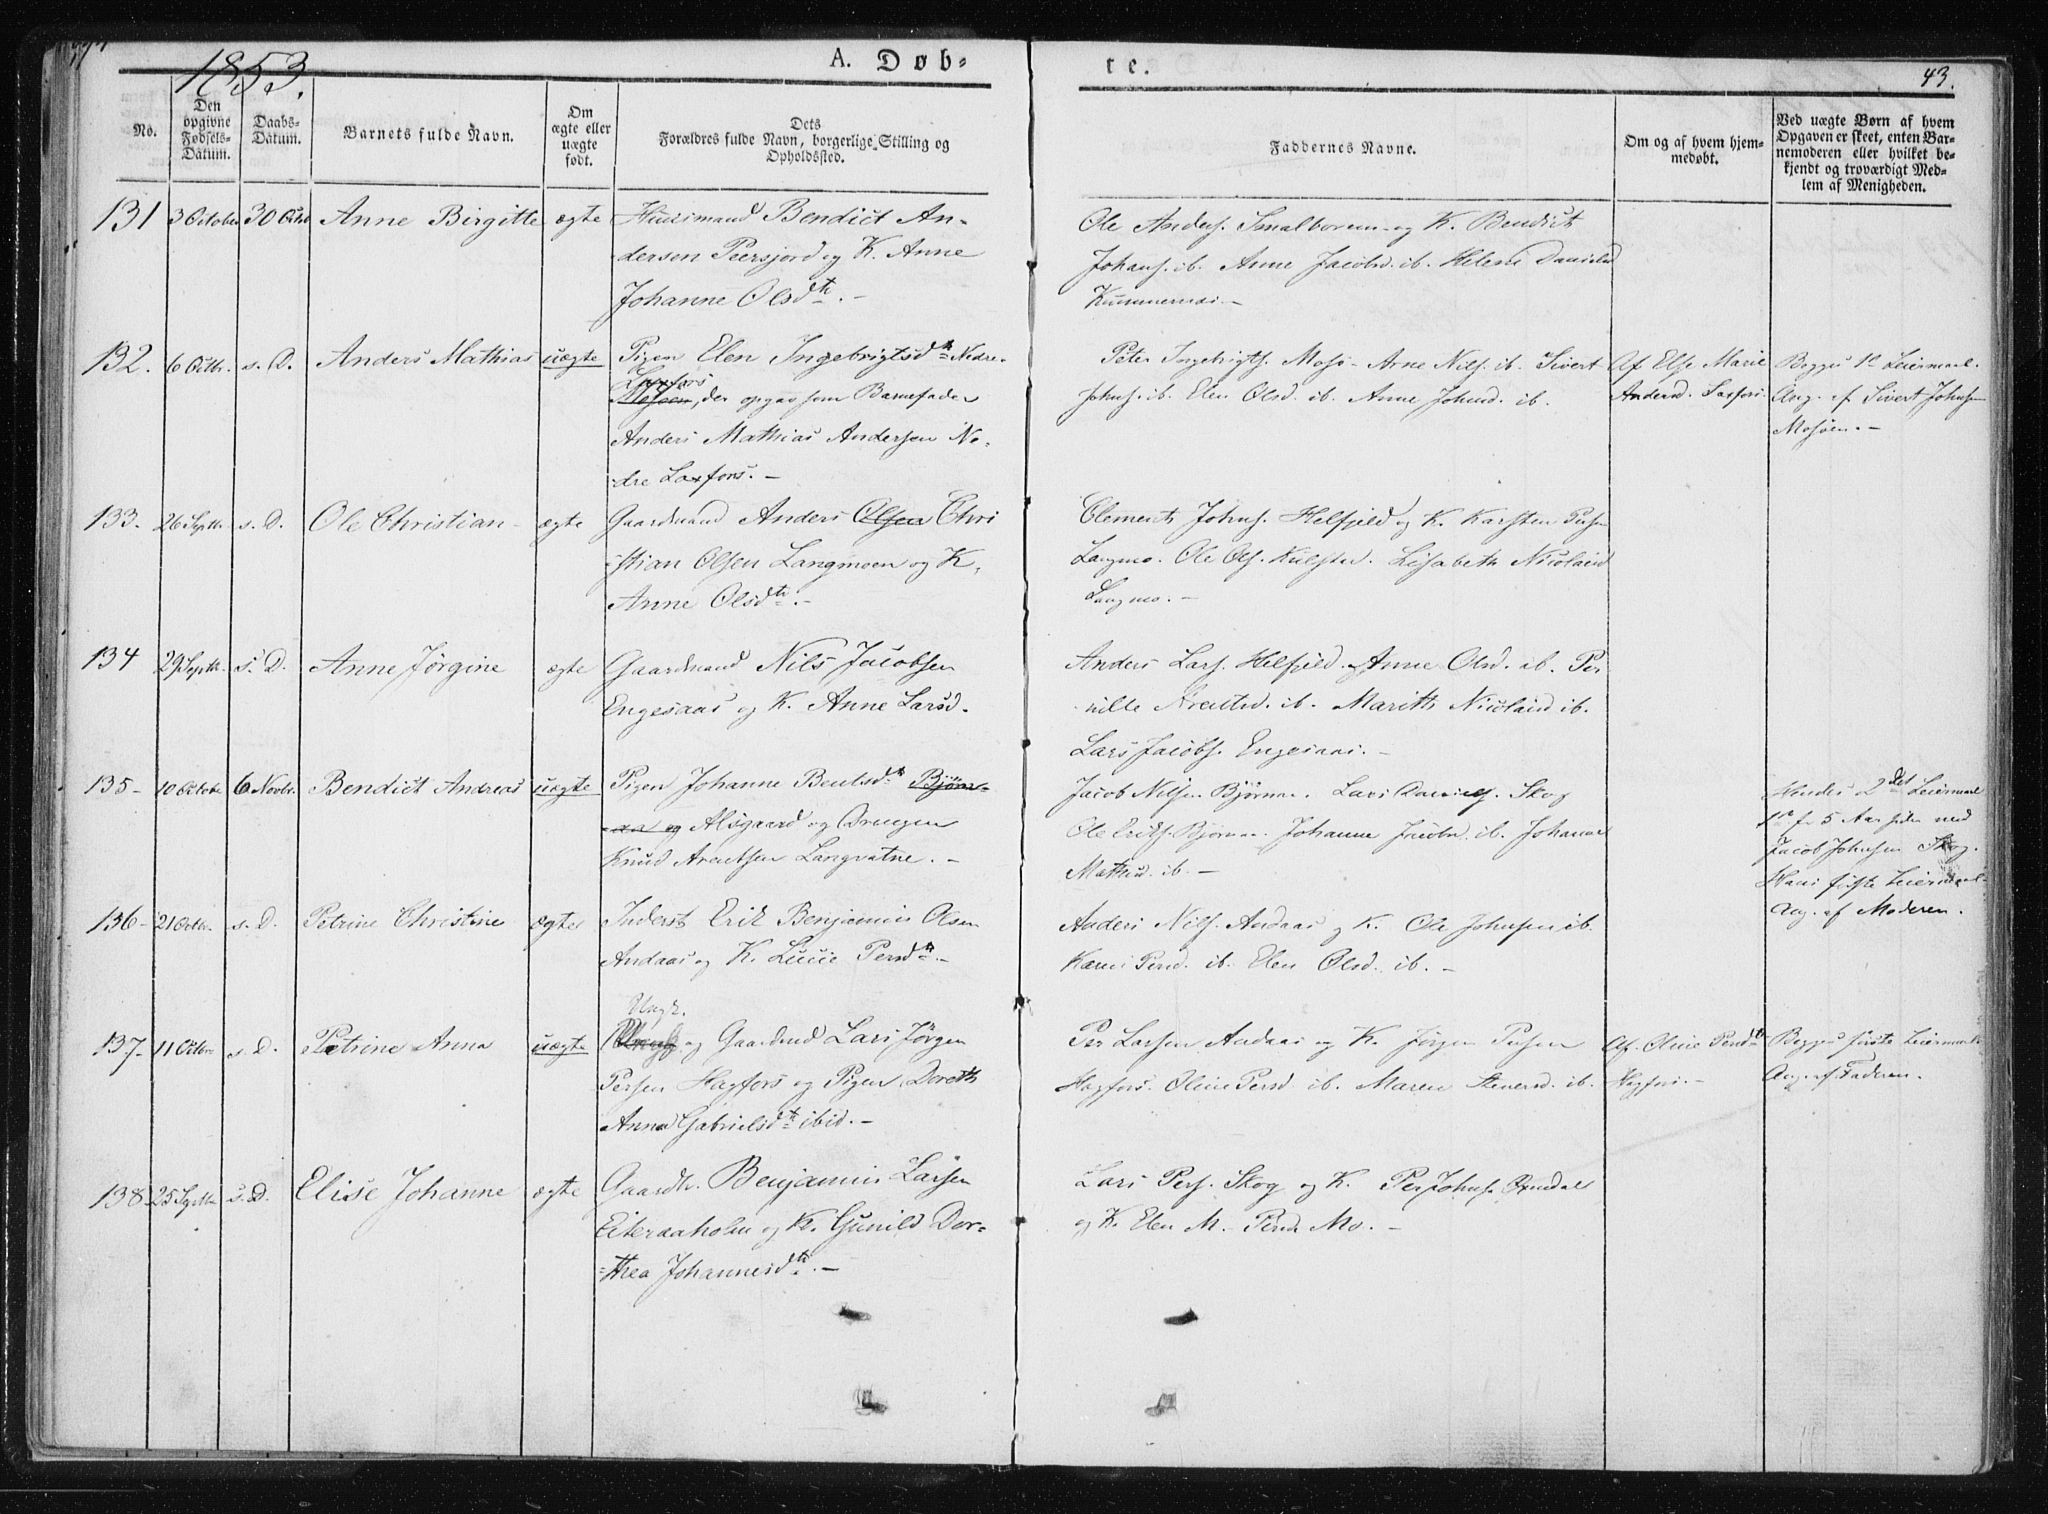 1853.
A. Døb-
te.
43.
No.
Den opgivne Fødsels-Datum.
Daabs-Datum.
Barnets fulde Navn.
Om ægte eller uægte født.
Dets Forældres fulde Navn, borgerlige Stilling og Opholdssted.
Faddernes Navne.
Om og af hvem hjem-medøbt.
Ved uægte Børn af hvem Opgaven er skeet, enten Bar-nemoderen eller hvilket be-kjendt og troværdigt Med-lem af Menigheden.
131 3 October 30 Octb Anne Birgitte ægte Huusmand Bendict An-
dersen Persjord og K. Anne
Johanne Olsdtr. -
Ole Anders. Smalborum og K. Bendict
Johans. ib. Anne Jacobsd. ib. Helene Danielsd
132. 6 Octbr. s. D. Anders Mathias uægte Pigen Elen Ingebrigtsdtr Nedre-
Laxfors
Mosøen, der opgav som Barnefader
Anders Mathias Andersen Ne-
dre Laxfors. -
Peter Ingebrigts. Mosø - Arne Nils. ib. Sivert
Johns. ib. Elen Olsd. ib. Anne Johnsd. ib.
Af Else Marie
Andersd. Laxfors.
Begges 1e Leiermaal.
Ang. af Sivert Johnsen
Mosøen. -
133. 26 Septbr s. D. Ole Christian - ægte Gaardmand Anders Olsen Chri
-stian Olsen Langmoen og K.
Anne Olsdtr. -
Clement Johns. Helfjeld og K. Karsten Persen
Langmo. Ole Ols. Kulsten. Lisabeth Nicolaisd
Langmo. -
134 29 Septbr. s. D. Anne Jørgine ægte Gaardmand Nils Jacobsen
Engesaas og K. Anne Larsd.
Anders Lars. Helfjeld. Anne Olsd. ib. Per
nille Arentsd. ib. Marith Nicolaisd ib.
Lars Jacobs. Engesaas. -
135- 10 Octobr 6 Novbr. Bendict Andreas uægte Pigen Johanne Bentsdtr Bjørn-
aa og Alsgaard og Drengen
Knud Arentsen Langvatne. -
Jacob Nilsen Bjørnaa. Lars Daniels. Skog
Ole Eriks. Bjørnaa. Johanne Jacobsd. ib. Johanne
Mathisd. ib. -
Hendes 2det Leiermaal
1te for 5 Aar siden med
Jacob Johnsen Skog.
Hans første Leiermaal
Ang. af Moderen.
136- 21 Octbr. s. D. Petrine Christine ægte Inderst Erik Benjamin Olsen
Andaas og K. Lucie Persdtr. -
Anders Nils. Andaas og K. Ole Johnsen ib.
Karen Persd. ib. Elen Olsd. ib. -
137- 11 Octbr s. D. Petrine Anna uægte Ungk. og Gaardmd Lars Jørgen
Persen Hagfors og Pigen Doreth
Anna Gabrielsdtr ibid. -
Per Larsen Andaas og K. Jørgen Persen
Hagfors. Oline Persd. ib. Maren Stenersd. ib.
Af Oline Persdtr
Hagfors. -
Begges første Leiermaal
Ang. af Faderen.
138 25 Septbr s. D. Elise Johanne ægte Gaardb. Benjamin Larsen
Eiteraaholm og K. Gunild Dor-
-thea Johannesdtr. -
Lars Pers. Skog og K. Per Johns.
og K. Elen M. Persd. Mo. -